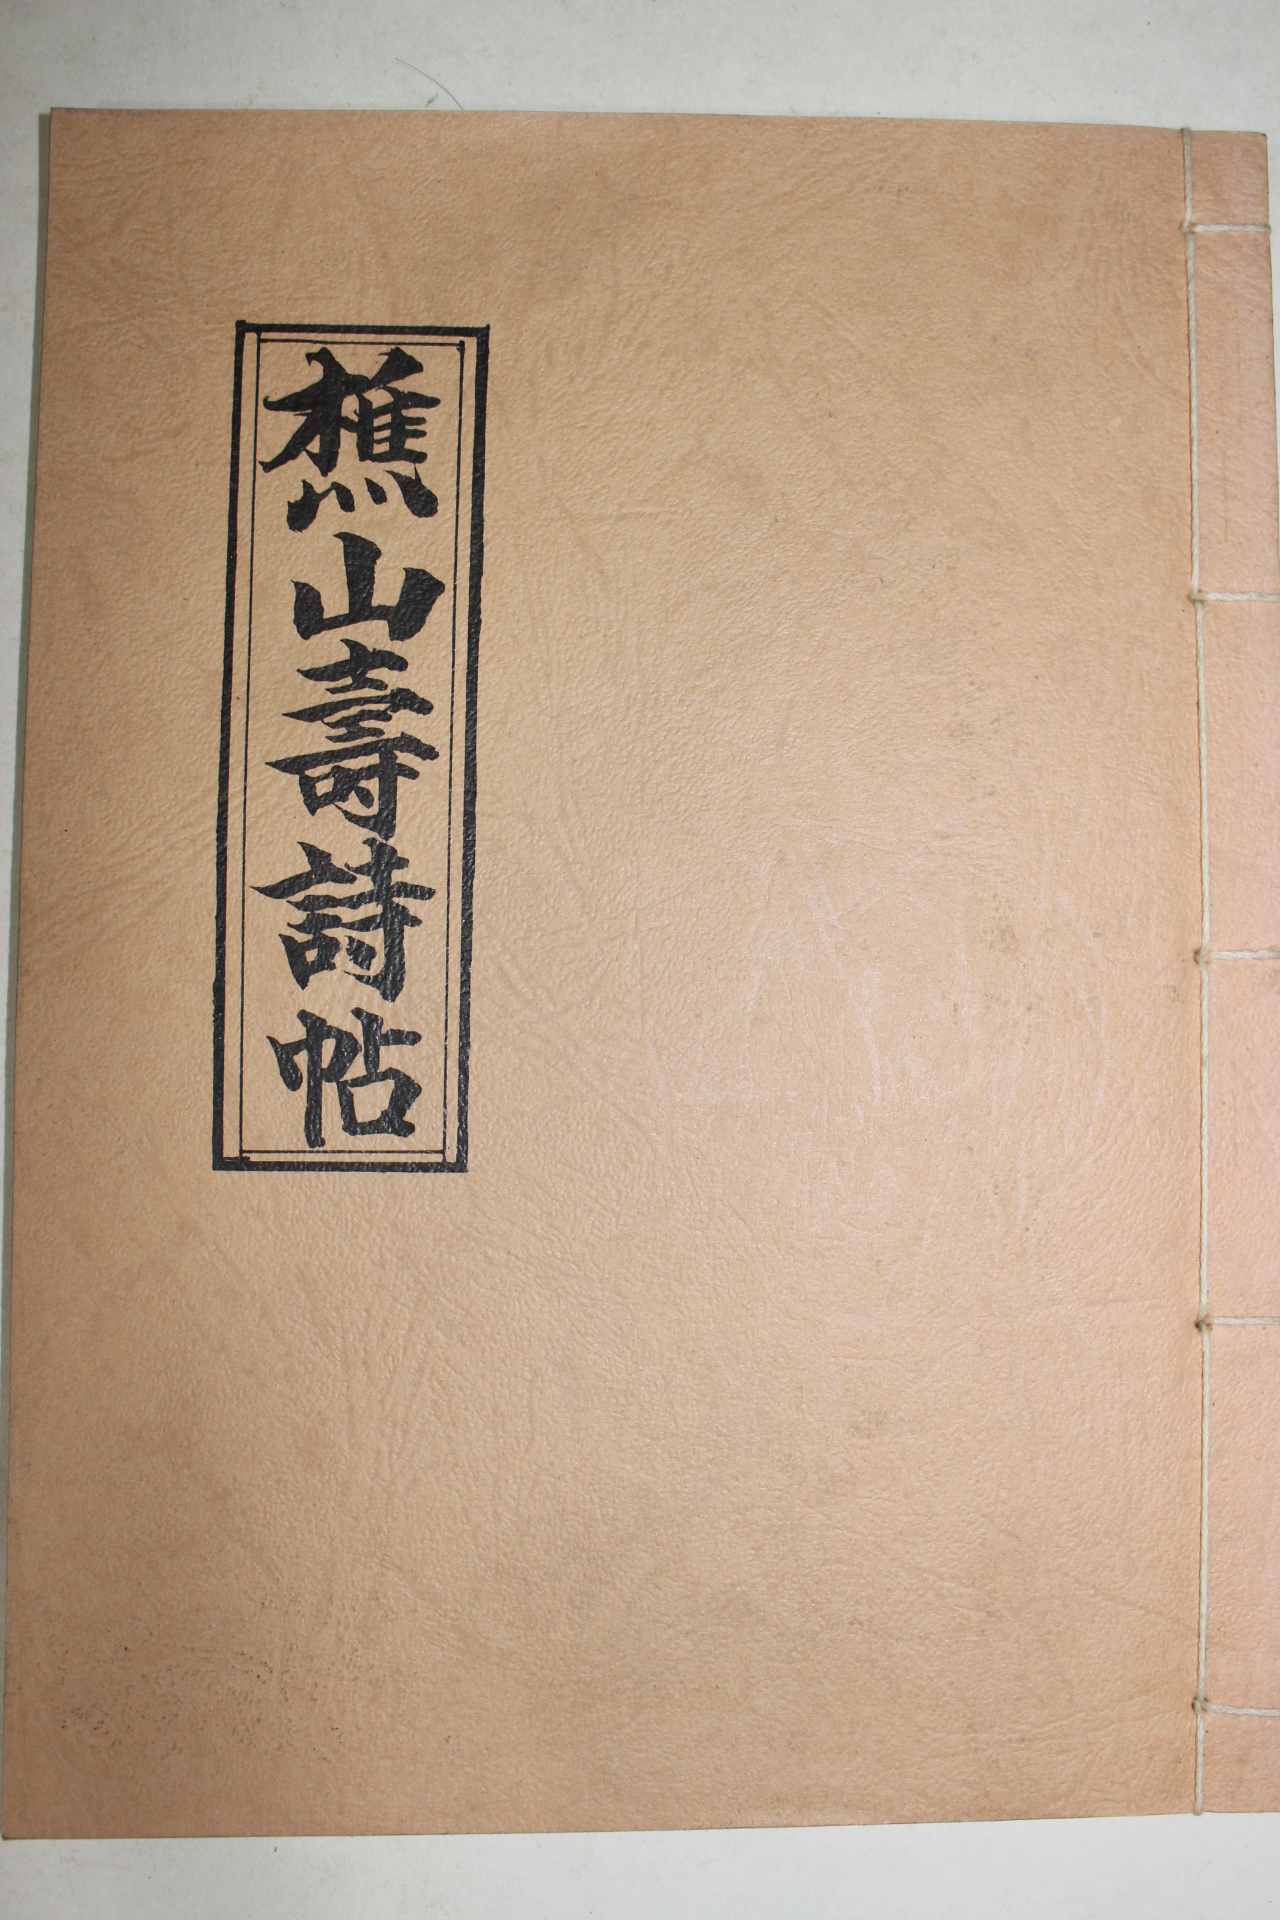 樵山壽詩帖